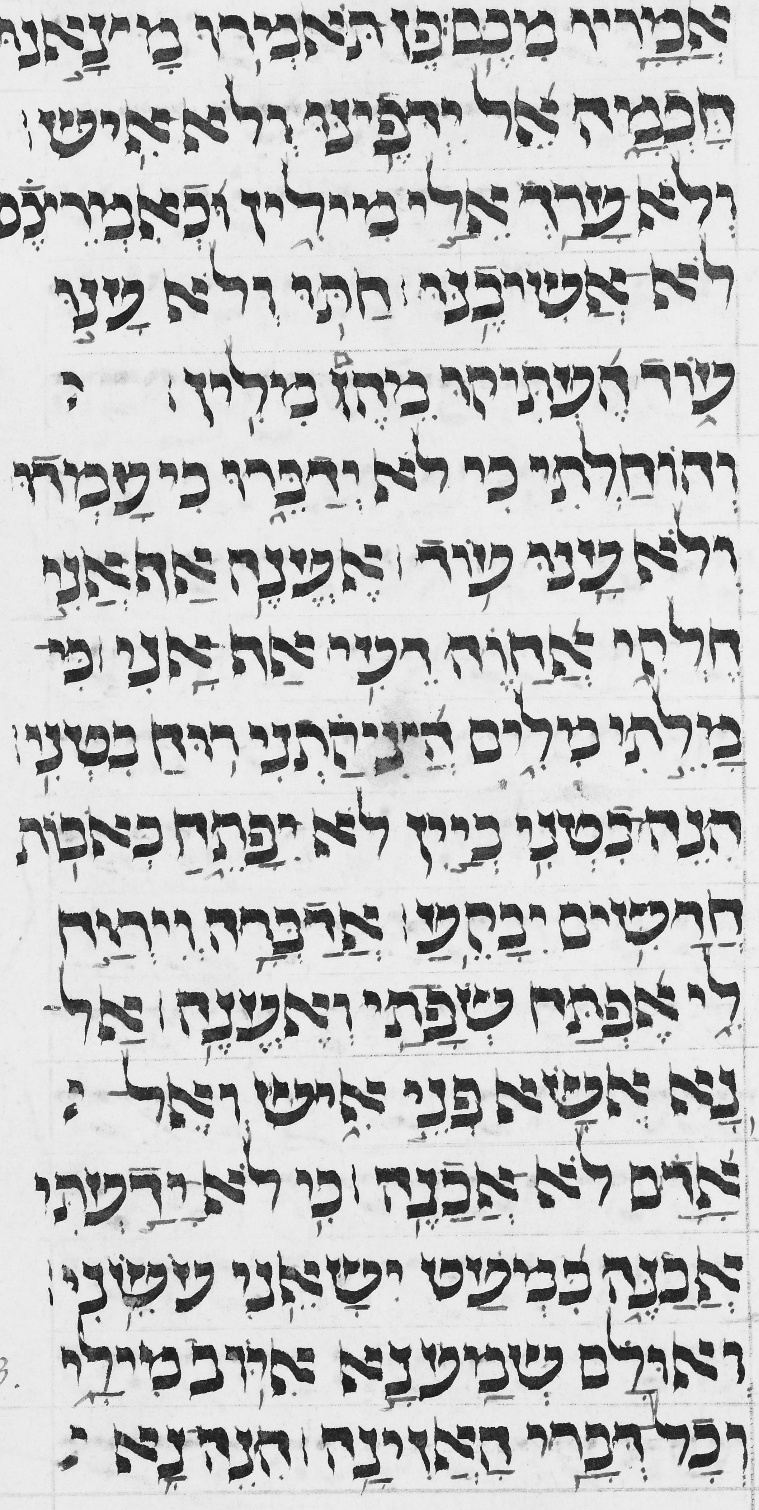 אֲמָרָיו מִכֶּם׃ פֶּן תֹּאמְרוּ מָצָאנוּ
חָכְמָה אֵל יִדְּפֶינּוּ וְלֹא אִישׁ׃
וְלֹא עָרַךְ אֵלַי מִילִין וּבְאִמְרֵיכֶם
לֹא אֲשִׁיבֶנּוּ׃ חַתּוּ וְלֹא עָנוּ
עוֹד הֶעְתִּיקוּ מֵהֶן מִלִּין׃
וְהוֹחַלְתִּי כִּי לֹא יְדַבֵּרוּ כִּי עָמְדוּ
וְלֹא עָנוּ עוֹד׃ אֶעֱנֶה אַף אֲנִי
חֶלְקִי אֲחַוֶּה דֵעִי אַף אָנִי׃ כִּי
מַלֵתִי מִלִּים הֱצִיקַתְנִי רוּחַ בִּטְנִי׃
הִנֵּה בִטְנִי כְּיַיִן לֹא יִפָּתֵחַ כְּאֹבוֹת
חֲדָשִׁים יִבָּקֵעַ׃ אֲדַבְּרָה וְיִרְוַח
לִי אֶפְתַּח שְׂפָתַי וְאֶעֱנֶה׃ אַל
נָא אֶשָּׂא פְנֵי אִישׁ וְאֶל
אָדָם לֹא אֲכַנֶּה׃ כִּי לֹא יָדַעְתִּי
אֲכַנֶּה כִּמְעַט יִשָּׂאֵנִי עֹשֵׂנִי׃
וְאוּלָם שְׁמַע נָא אִיּוֹב מִילָּי
וְכָל דְּבָרַי הַאֲזִינָה׃ הִנֵּה נָא